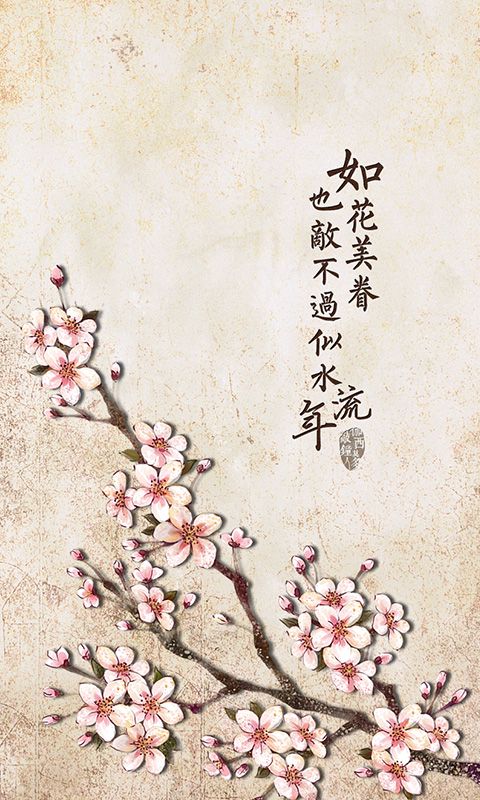 如花美眷
也敵不過似水流
年